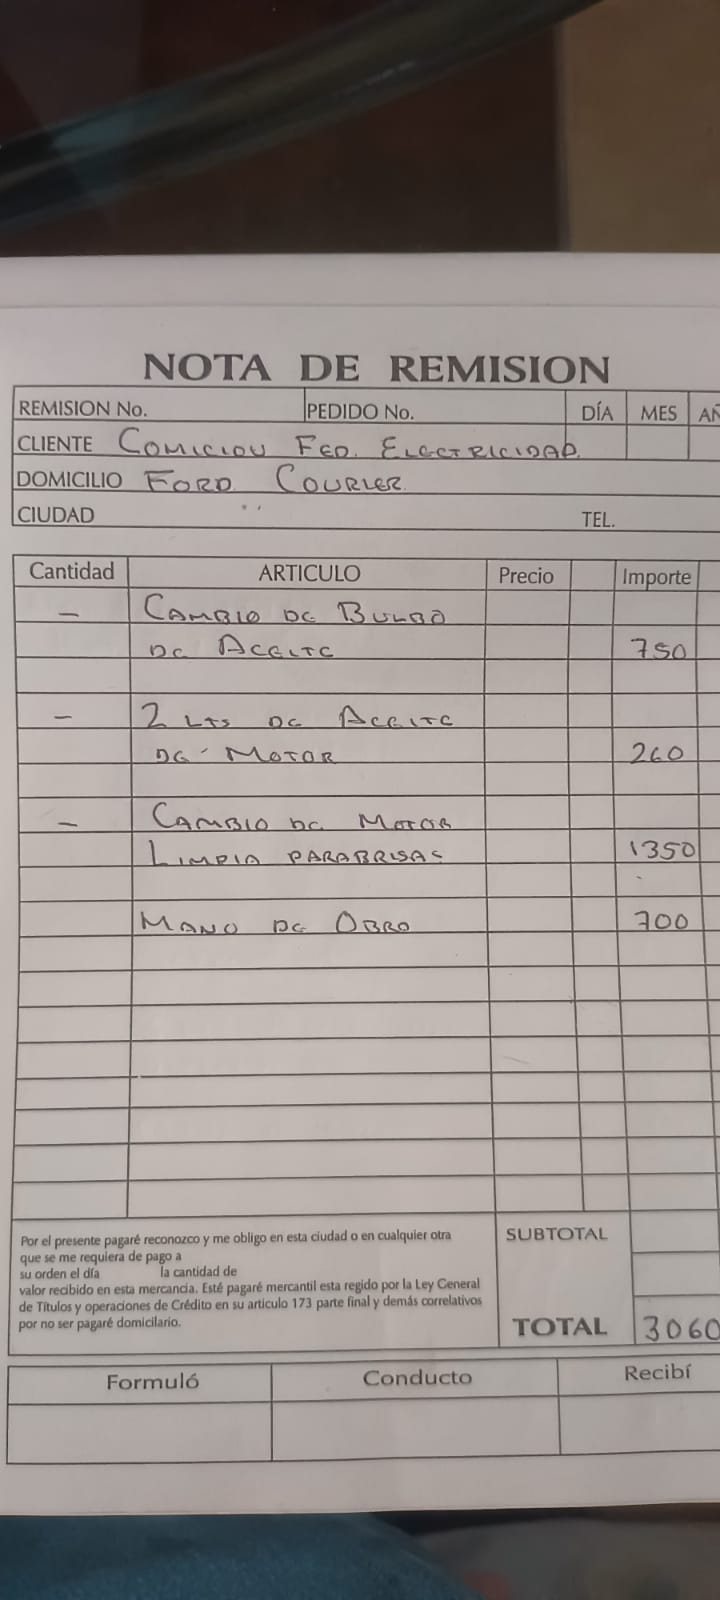 NOTA DE REMISION
REMISION No. PEDIDO No. DÍA MES AÑ
CLIENTE COMICION FED. ELECTRICIDAD.
DOMICILIO FORD COURIER
CIUDAD TEL.
Cantidad ARTICULO Precio Importe
– CAMBIO DE BULBO
DE ACEITE 750
– 2 LTS DE ACEITE
DE MOTOR 260
– CAMBIO DE MOTOR
LIMPIA PARABRISAS 1350
MANO DE OBRO 700
Por el presente pagaré reconozco y me obligo en esta ciudad o en cualquier otra
que se me requiera de pago a
su orden el día la cantidad de
valor recibido en esta mercancia. Esté pagaré mercantil esta regido por la Ley General
de Títulos y operaciones de Crédito en su articulo 173 parte final y demás correlativos
por no ser pagaré domicilario.
SUBTOTAL
TOTAL 3060
Formuló Conducto Recibí